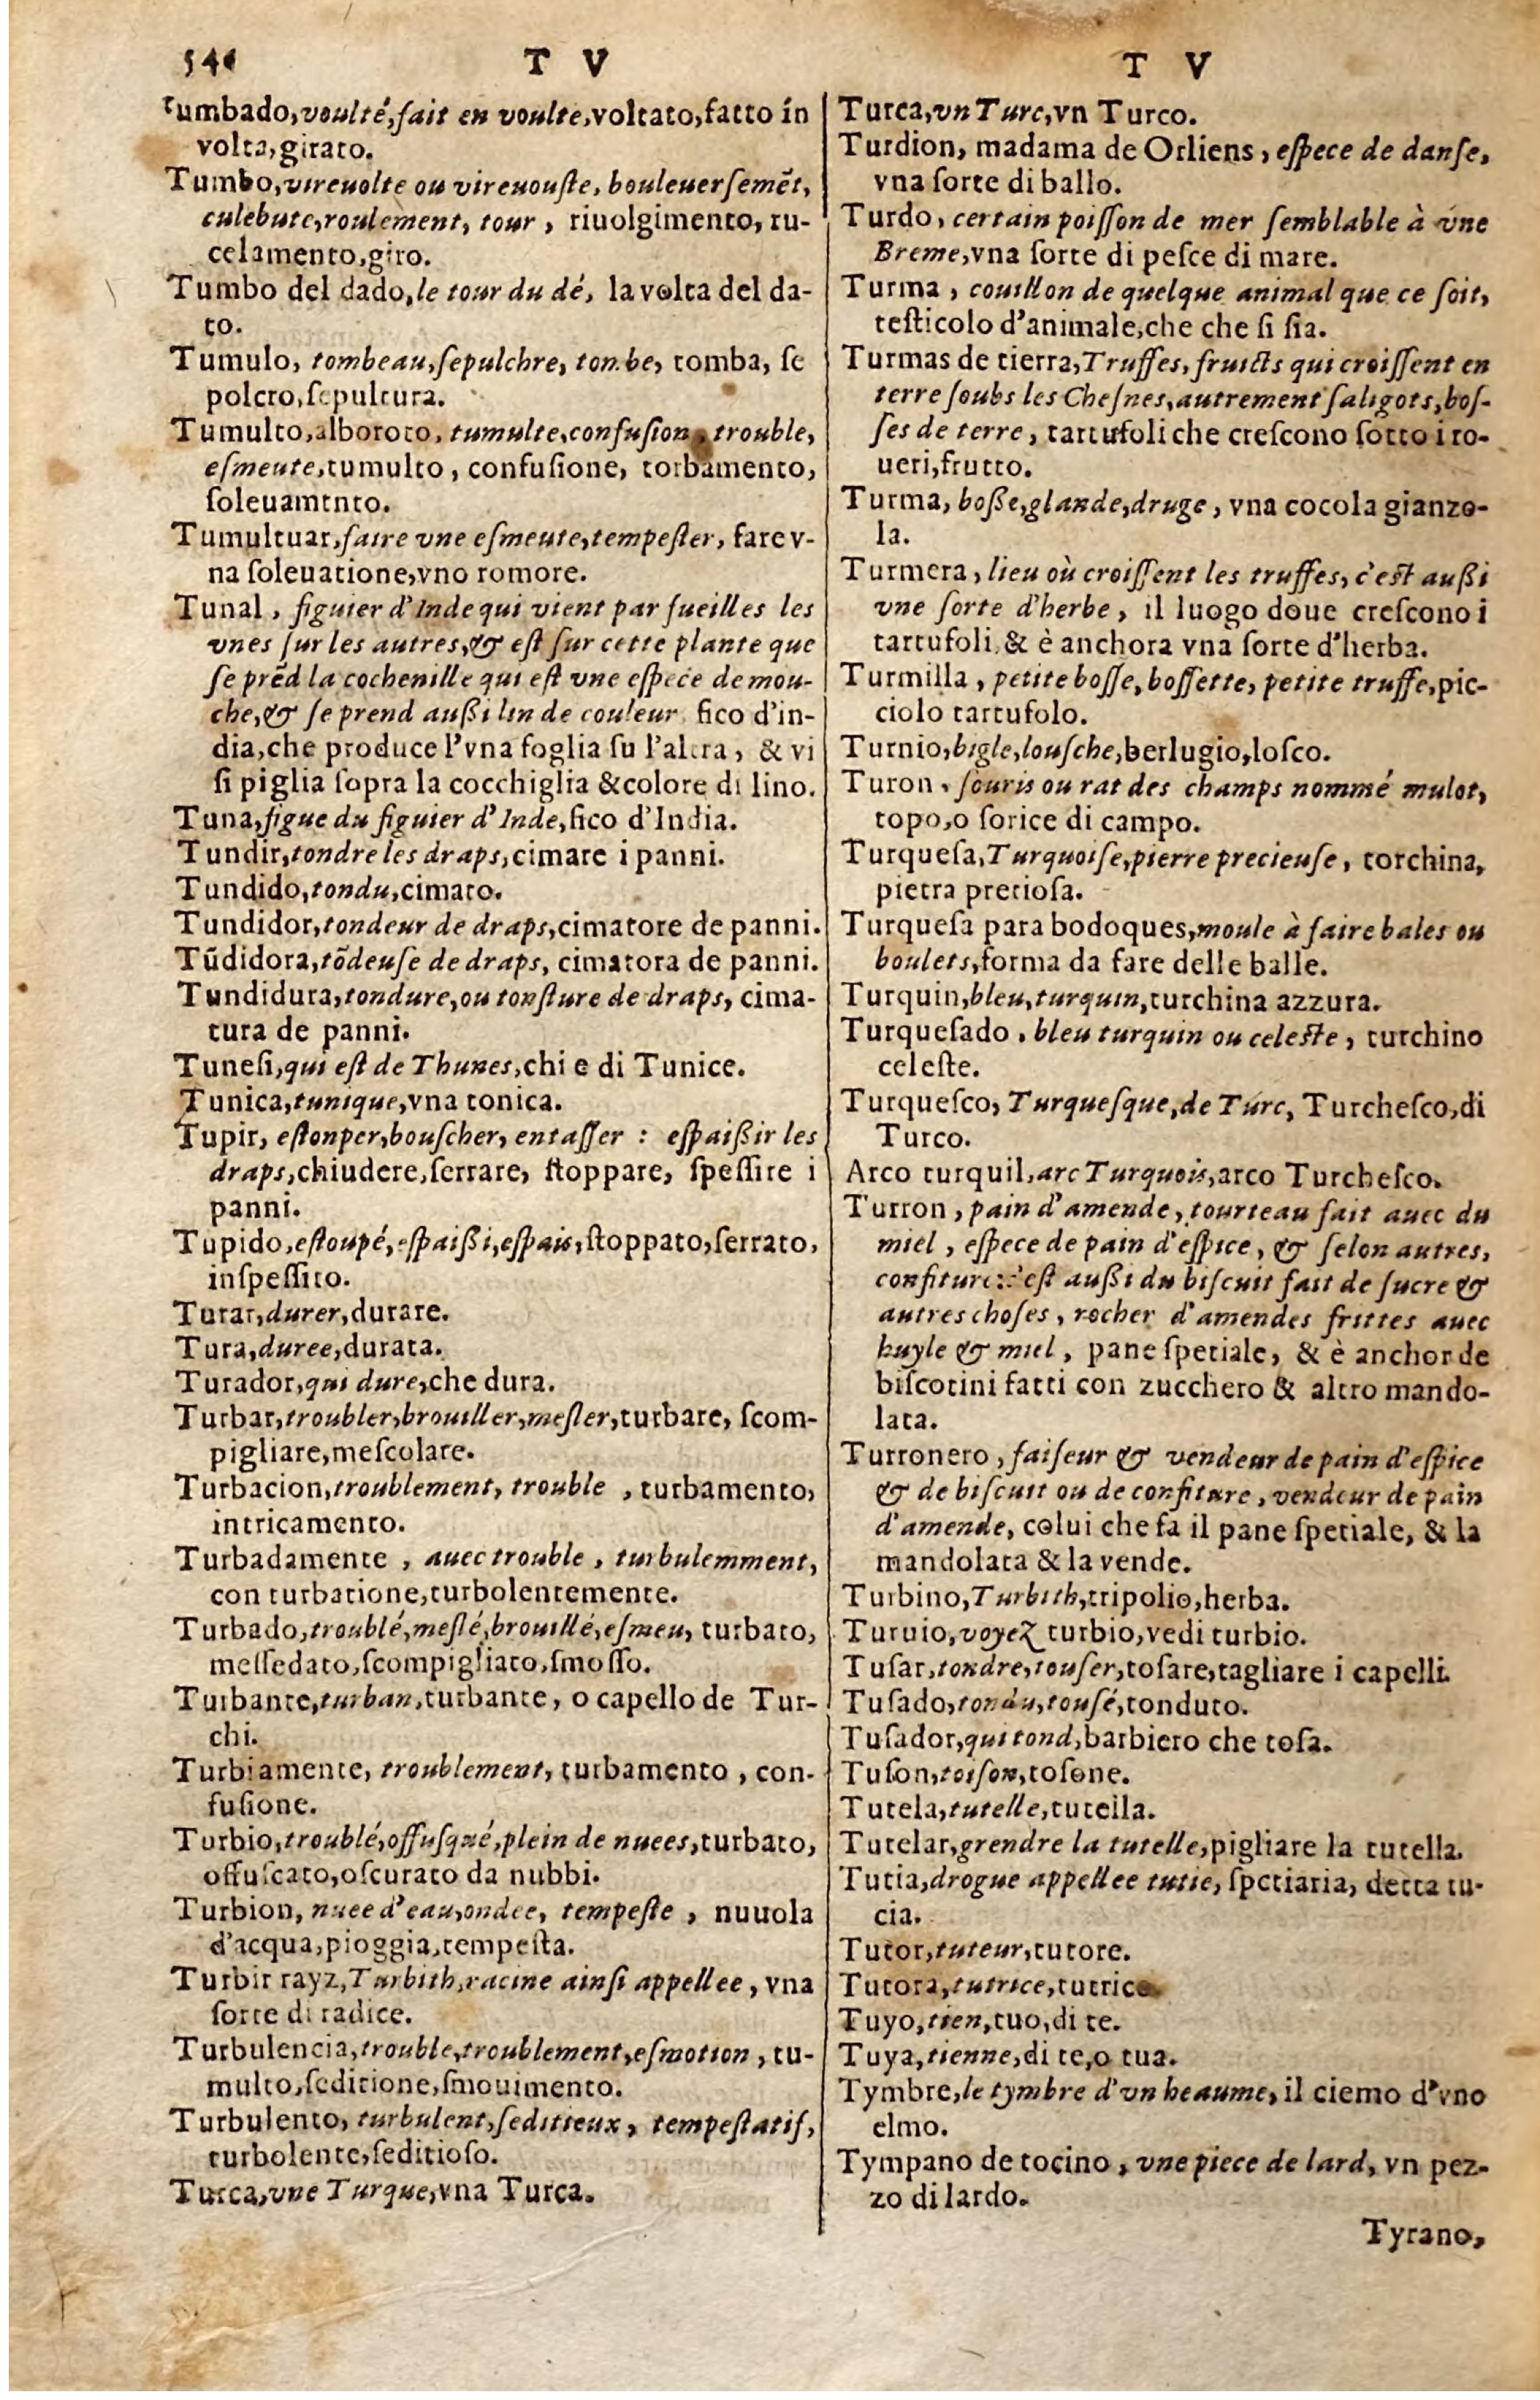 546 T V T V
Tumbado, voulté, fait en voulte, voltato, fatto in
volta, girato.
Tumbo, vireuolte ou vireuouſte, bouleuerſemẽt,
culebute, roulement, tour, riuolgimento, ru-
celamento, giro.
Tumbo del dado, le tour du dé, la volta del da-
to.
Tumulo, tombeau, ſepulchre, tombe, tomba, ſe
polcro, ſepultura.
Tumulto, alboroto, tumulte, confuſion, trouble,
eſmeute, tumulto, confuſione, torbamento,
ſoleuamento.
Tumultuar, faire vne eſmeute, tempeſter, fare v-
na ſoleuatione, vno romore.
Tunal, figuier d'Inde qui vient par fueilles les
vnes ſur les autres, & eſt ſur cette plante que
ſe prẽd la cochenille qui eſt vne eſpece de mou-
che, & ſe prend außi lin de couleur, fico d'in-
dia, che produce l'vna foglia ſu l'altra, & vi
ſi piglia ſopra la cocchiglia & colore di lino.
Tuna, figue du figuier d'Inde, fico d'India.
Tundir, tondre les draps, cimare i panni.
Tundido, tondu, cimato.
Tundidor, tondeur de draps, cimatore de panni.
Tũdidora, tõdeuſe de draps, cimatora de panni.
Tundidura, tondure, ou tonſture de draps, cima-
tura de panni.
Tuneſi, qui eſt de Thunes, chi e di Tunice.
Tunica, tunique, vna tonica.
Tupir, eſtonper, bouſcher, entaſſer : eſpaißir les
draps, chiudere, ſerrare, ſtoppare, ſpeſſire i
panni.
Tupido, eſtoupé, eſpaißi, eſpais, ſtoppato, ſerrato,
inſpeſſito.
Turar, durer, durare.
Tura, duree, durata.
Turador, qui dure, che dura.
Turbar, troubler, brouiller, meſler, turbare, ſcom-
pigliare, meſcolare.
Turbacion, troublement, trouble, turbamento,
intricamento.
Turbadamente, auec trouble, turbulemment,
con turbatione, turbolentemente.
Turbado, troublé, meſlé, brouillé, eſmeu, turbato,
meſſedato, ſcompigliato, ſmoſſo.
Turbante, turban, turbante, o capello de Tur-
chi.
Turbiamente, troublement, turbamento, con-
fuſione.
Turbio, troublé, offuſqué, plein de nuees, turbato,
offuſcato, oſcurato da nubbi.
Turbion, nuee d'eau, ondee, tempeſte, nuuola
d'acqua, pioggia, tempeſta.
Turbit rayz, Turbith, racine ainſi appellee, vna
ſorte di radice.
Turbulencia, trouble, troublement, eſmotion, tu-
multo, ſeditione, ſmouimento.
Turbulento, turbulent, ſeditieux, tempeſtatif,
turbolente, ſeditioſo.
Turca, vne Turque, vna Turca.
Turca, vn Turc, vn Turco.
Turdion, madama de Orliens, eſpece de danſe,
vna ſorte di ballo.
Turdo, certain poiſſon de mer ſemblable à vne
Breme, vna ſorte di peſce di mare.
Turma, couillon de quelque animal que ce ſoit,
teſticolo d'animale, che che ſi ſia.
Turmas de tierra, Truffes, fruicts qui croiſſent en
terre ſoubs les Cheſnes, autrement ſaligots, boſ-
ſes de terre, tartufoli che creſcono ſotto i ro-
ueri, frutto.
Turma, boße, glande, druge, vna cocola gianzo-
la.
Turmera, lieu où croiſſent les truffes, c'eſt außi
vne ſorte d'herbe, il luogo doue creſcono i
tartufoli, & è anchora vna ſorte d'herba.
Turmilla, petite boſſe, boſſette, petite truffe, pic-
ciolo tartufolo.
Turnio, bigle, louſche, berlugio, loſco.
Turon, ſouris ou rat des champs nommé mulot,
topo, o ſorice di campo.
Turqueſa, Turquoiſe, pierre precieuſe, torchina,
pietra pretioſa.
Turqueſa para bodoques, moule à faire bales ou
boulets, forma da fare delle balle.
Turquin, bleu, turquin, turchina azzura.
Turqueſado, bleu turquin ou celeſte, turchino
celeſte.
Turqueſco, Turqueſque, de Turc, Turcheſco, di
Turco.
Arco turquil, arc Turquois, arco Turcheſco.
Turron, pain d'amende, tourteau fait auec du
miel, eſpece de pain d'eſpice, & ſelon autres,
confiture: c'eſt außi du biſcuit fait de ſucre &
autres choſes, rocher d'amendes frittes auec
huyle & miel, pane ſpetiale, & è anchor de
biſcotini fatti con zucchero & altro mando-
lata.
Turronero, faiſeur & vendeur de pain d'eſpice
& de biſcuit ou de confiture, vendeur de pain
d'amende, colui che fa il pane ſpetiale, & la
mandolata & la vende.
Turbino, Turbith, tripolio, herba.
Turuio, voyez turbio, vedi turbio.
Tuſar, tondre, touſer, toſare, tagliare i capelli.
Tuſado, tondu, touſé, tonduto.
Tuſador, qui tond, barbiero che toſa.
Tuſon, toiſon, toſone.
Tutela, tutelle, tutella.
Tutelar, grendre la tutelle, pigliare la tutella.
Tutia, drogue appellee tutie, ſpetiaria, detta tu-
cia.
Tutor, tuteur, tutore.
Tutora, tutrice, tutrice.
Tuyo, tien, tuo, di te.
Tuya, tienne, di te, o tua.
Tymbre, le tymbre d'vn heaume, il ciemo d'vno
elmo.
Tympano de tocino, vne piece de lard, vn pez-
zo di lardo.
Tyrano,